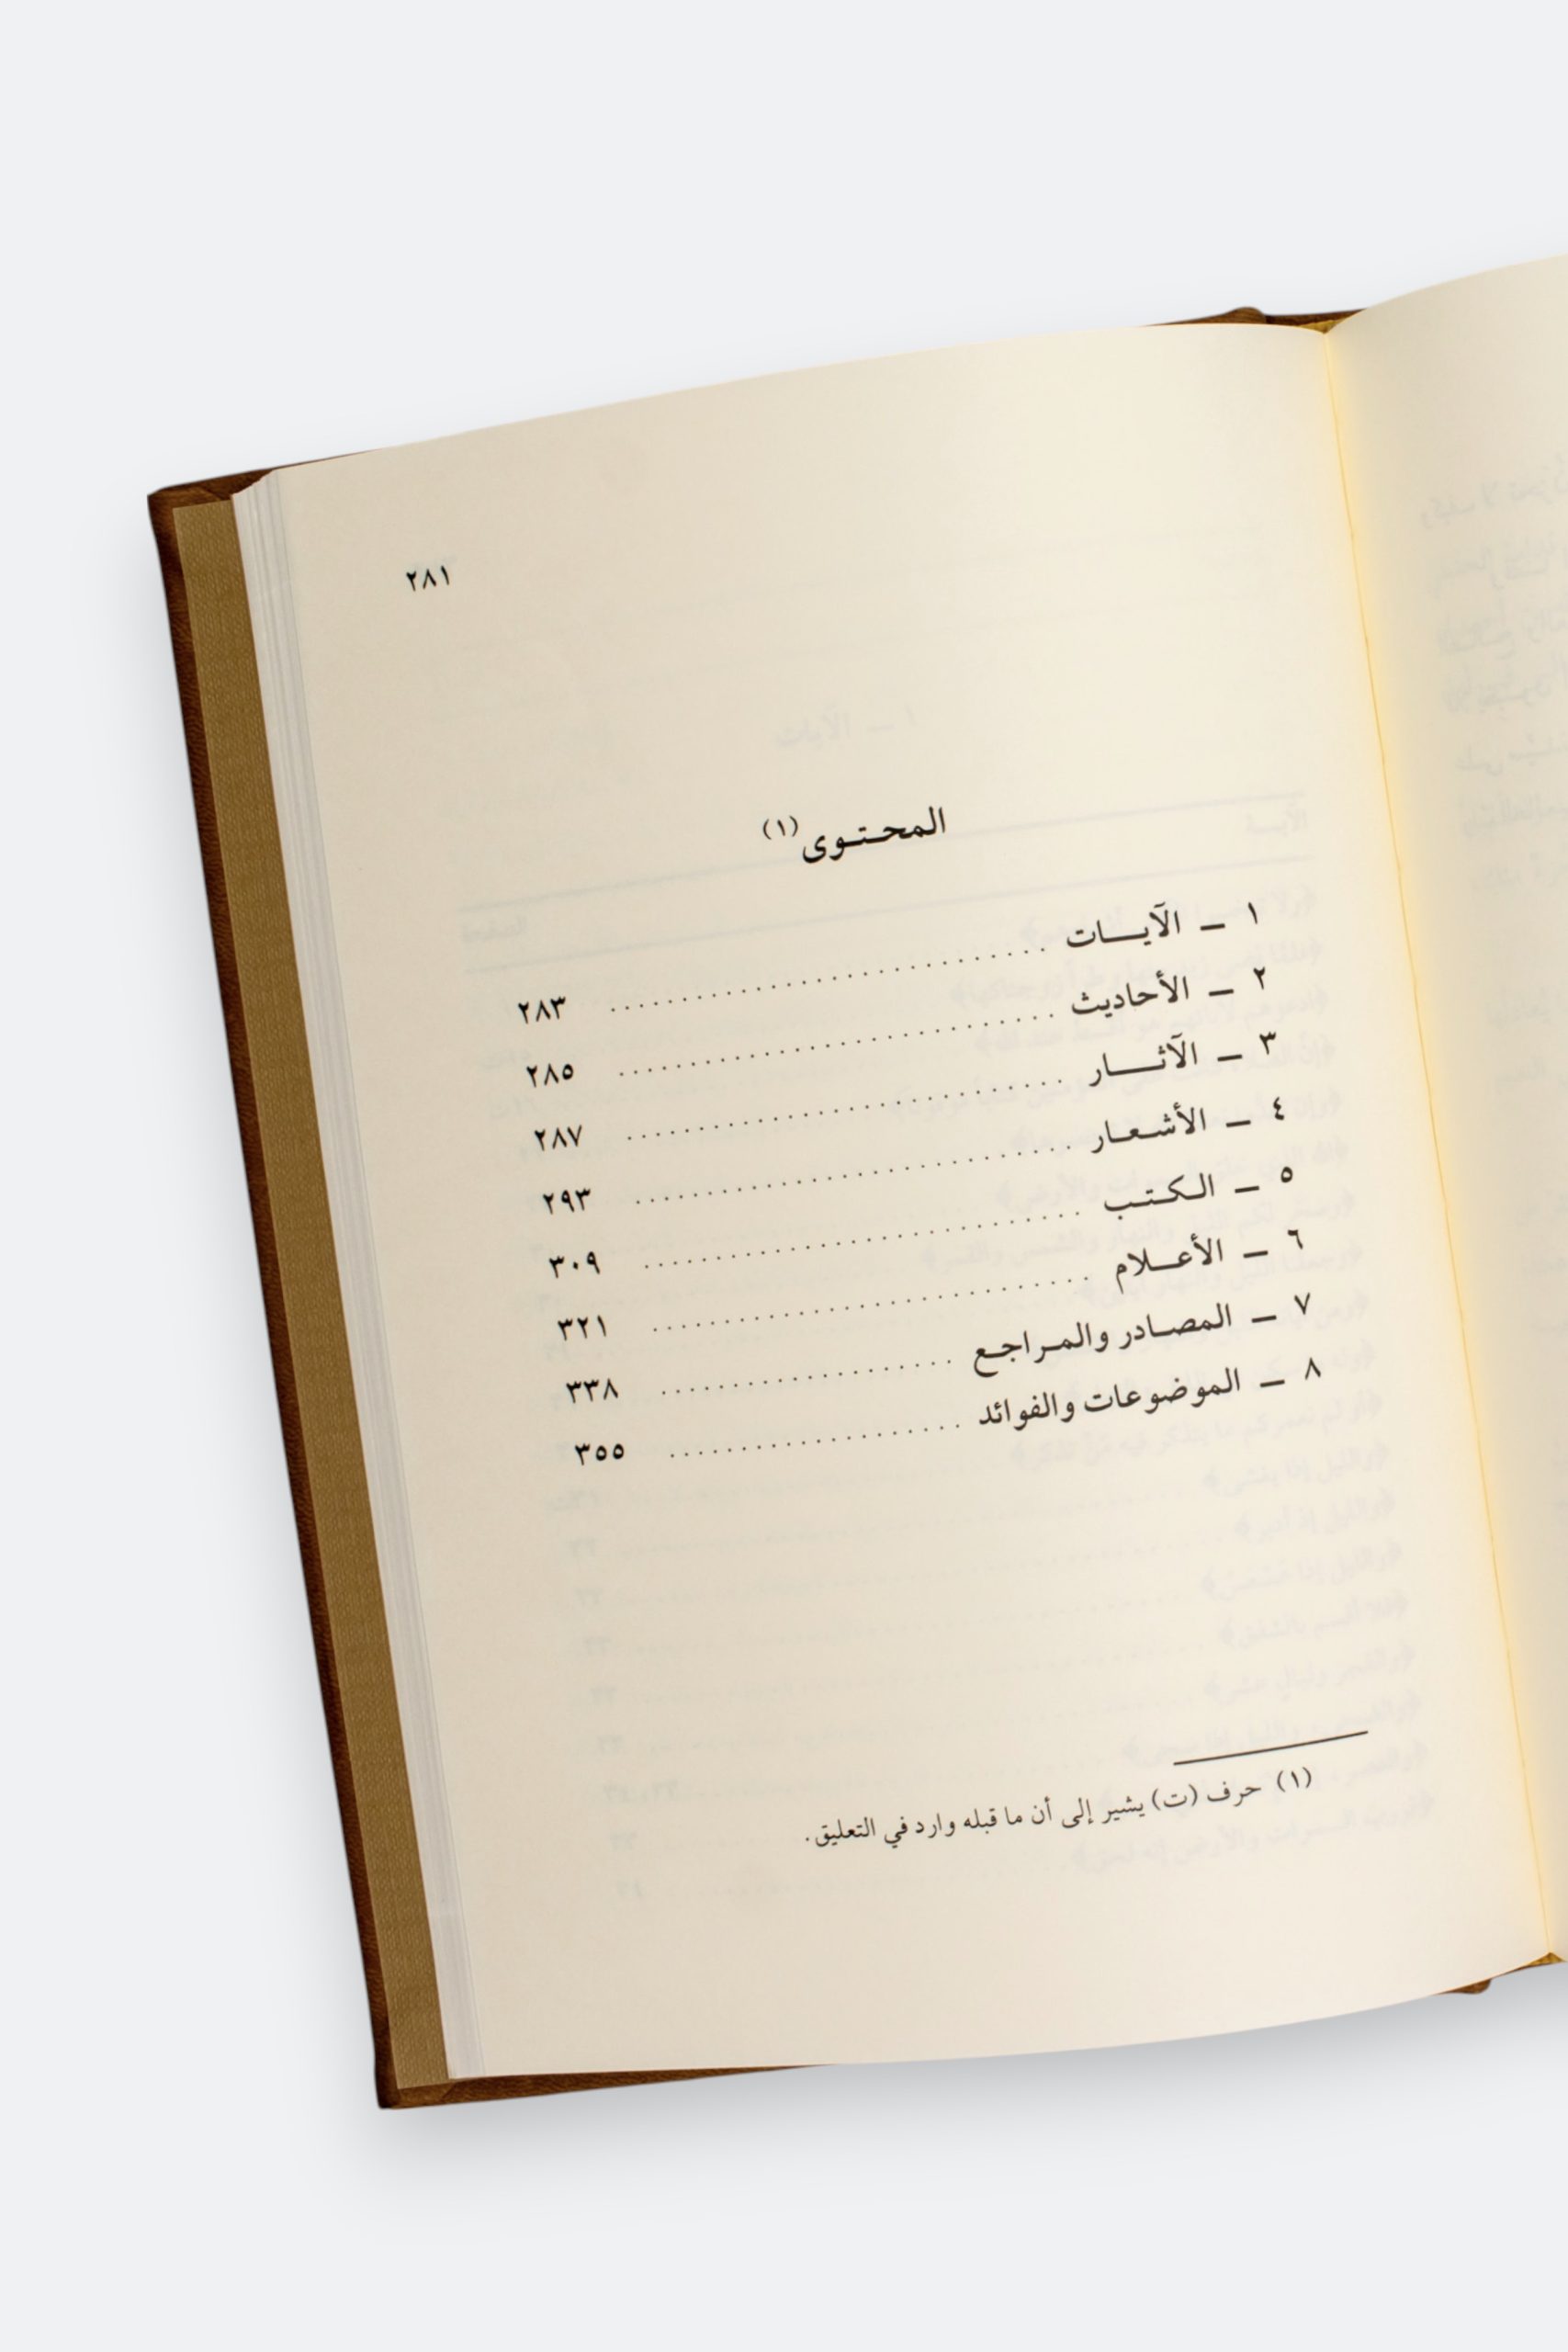 ٢٨١
المحتوى (١)
١ ـ الآيات ........ ٢٨٣
٢ ـ الأحاديث ........ ٢٨٥
٣ ـ الآثار ........ ٢٨٧
٤ ـ الأشعار ........ ٢٩٣
٥ ـ الكتب ........ ٣٠٩
٦ ـ الأعلام ........ ٣٢١
٧ ـ المصادر والمراجع ........ ٣٣٨
٨ ـ الموضوعات والفوائد ........ ٣٥٥
(١) حرف (ت) يشير إلى أن ما قبله وارد في التعليق.